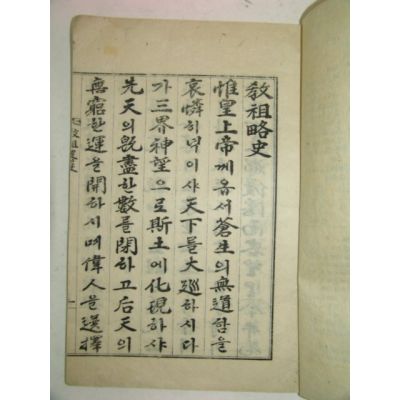 敎祖略史
惟皇上帝께옵서蒼生의無道함을
哀憐히녁이샤天下를大巡하시다
가三界神望으로斯土에化現하샤
先天의旣盡한數를閉하고后天의
無窮한運을開하시며偉人을選擇
敎祖略史
一